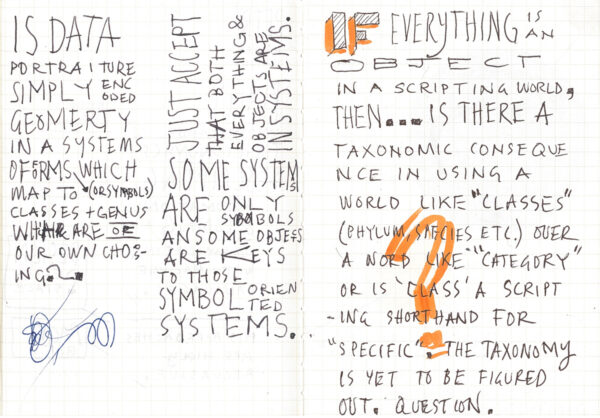 IS DATA
PORTRAITURE
SIMPLY ENC
ODED
GEOMERTY
IN A SYSTEMS
OF FORMS WHICH
MAP TO (OR SYMBOLS)
CLASSES + GENUS
ARE OF
OUR OWN CHOS-
ING.
JUST ACCEPT
THAT BOTH
EVERYTHING &
OBJECTS ARE
IN SYSTEMS.
SOME SYSTEMS
ARE ONLY
SYMBOLS
AN SOME OBJECTS
ARE KEYS
TO THOSE
SYMBOL ORIEN
TED
SYSTEMS.
IF EVERYTHING IS
AN
OBJECT
IN A SCRIPTING WORLD,
THEN... IS THERE A
TAXONOMIC CONSEQUE
NCE IN USING A
WORLD LIKE "CLASSES"
(PHYLUM, SPECIES ETC.) OVER
A WORD LIKE "CATEGORY"
OR IS 'CLASS' A SCRIPT
-ING SHORTHAND FOR
"SPECIFIC". THE TAXONOMY
IS YET TO BE FIGURED
OUT. QUESTION.
?